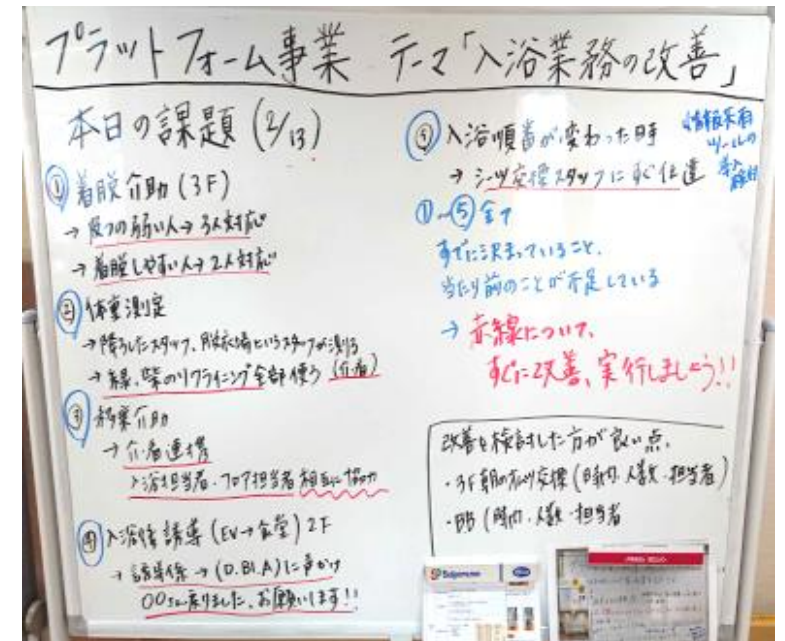 プラットフォーム事業 テーマ「入浴業務の改善」
本日の課題(2/13)
① 着脱介助(3F)
→ 足の弱い人→3人対応
→ 着脱しやすい人→2人対応
② 体重測定
→降ろしたスタッフ、脱衣場にいるスタッフが測る
→ 緑、紫のリクライニング全部使う(介・看)
③ 移乗介助
→ 介・看連携
入浴担当者・フロア担当者 相互に協力
④ 入浴後誘導(EV→食堂)2F
→ 誘導係→(D.B1.A)に声かけ
○○さん戻りました、お願いします!!
⑤ 入浴順番が変わった時
→ シーツ交換スタッフにすぐ伝達
情報共有
ツールの
導入
検討
①~⑤全て
すでに決まっていること、
当たり前のことが不足している
→ 赤線について、
すぐに改善、実行しましょう!!
改善を検討した方が良い点、
・3F朝のオムツ交換(時間・人数・担当者)
・BB(時間・人数・担当者